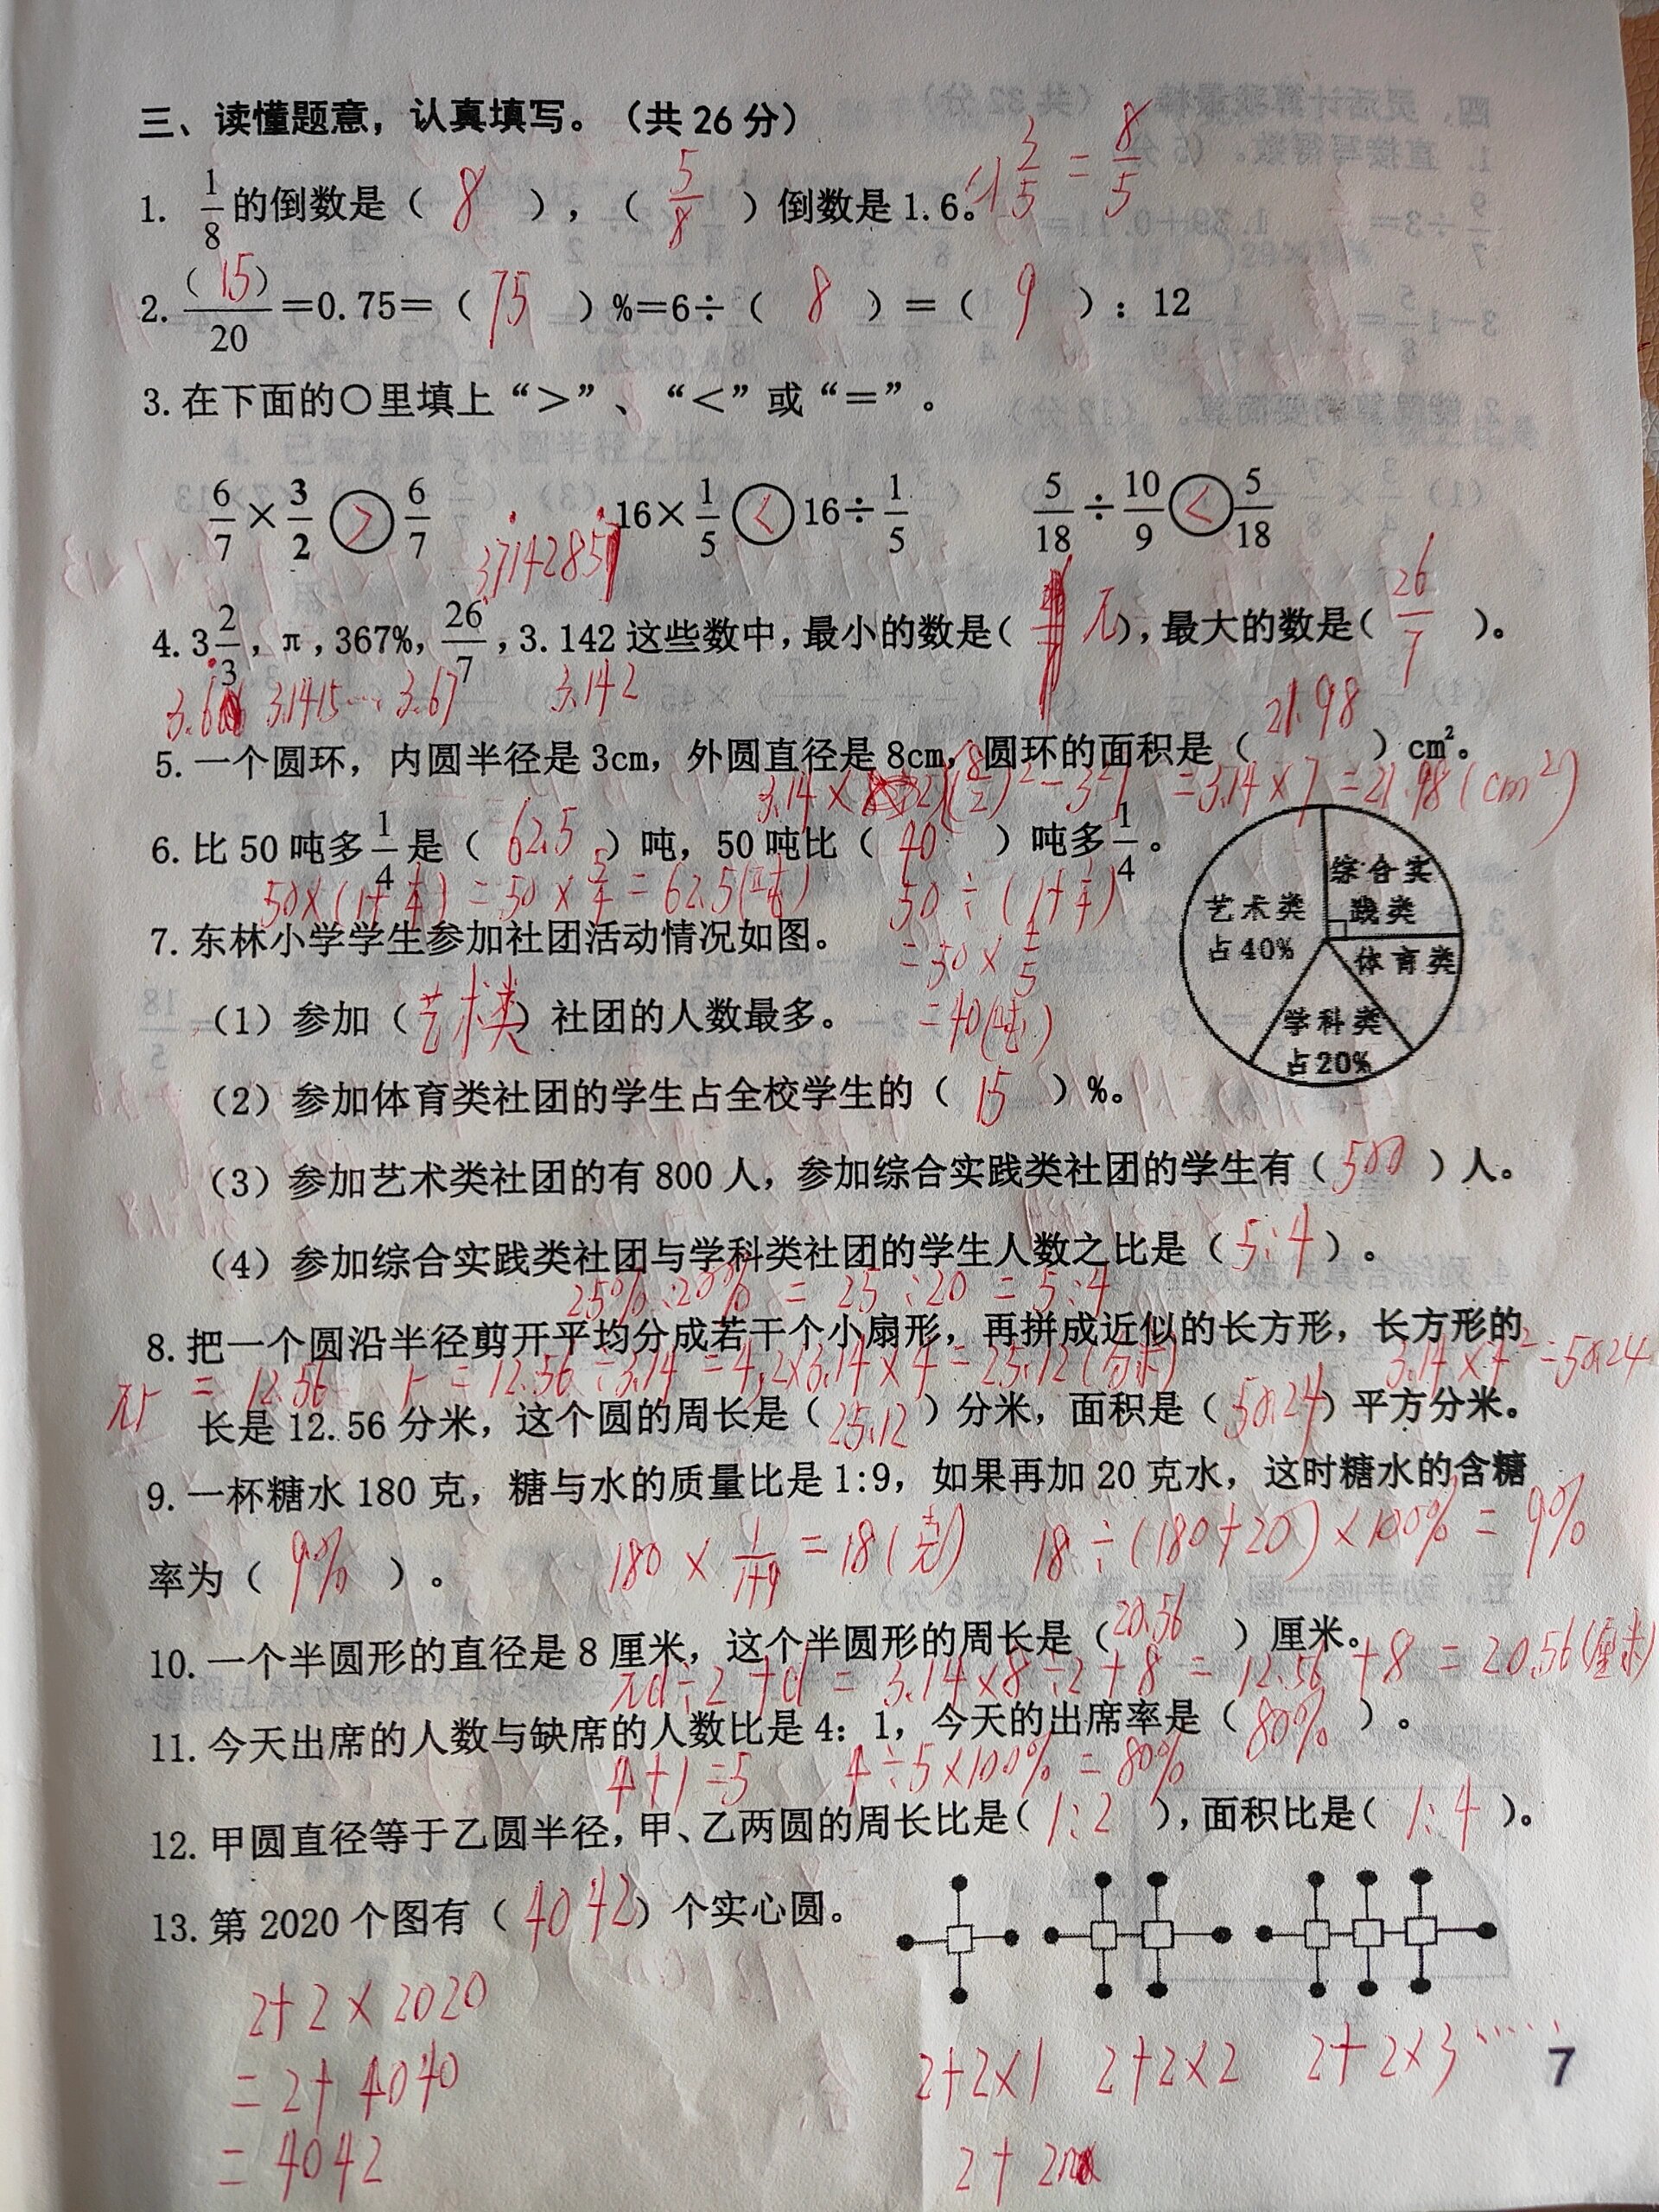 三、读懂题意，认真填写。（共26分）
1. 1/8的倒数是（ 8 ），（ 5/8 ）倒数是1.6。1 3/5 = 8/5
2. (15)/20 =0.75=（ 75 ）%=6÷（ 8 ）=（ 9 ）：12
3. 在下面的○里填上“>”、“<”或“=”。
6/7 × 3/2 > 6/7 16× 1/5 < 16÷ 1/5 5/18 ÷ 10/9 < 5/18
3.714285
4. 3 2/3, π, 367%, 26/7, 3.142这些数中,最小的数是( π ),最大的数是( 26/7 )。
3.6 3.1415… 3.67 3.142
5. 一个圆环，内圆半径是3cm，外圆直径是8cm，圆环的面积是（ 21.98 ）cm²。
3.14×[(8/2)²-3²] =3.14×7=21.98(cm²)
6. 比50吨多1/4是（ 62.5 ）吨，50吨比（ 40 ）吨多1/4。
50×(1+1/4)=50×5/4=62.5(吨) 50÷(1+1/4)
=50×4/5
=40(吨)
7. 东林小学学生参加社团活动情况如图。
综合实
践类
艺术类
占40%
体育类
学科类
占20%
（1）参加（艺术类）社团的人数最多。
（2）参加体育类社团的学生占全校学生的（ 15 ）%。
（3）参加艺术类社团的有800人，参加综合实践类社团的学生有（ 500 ）人。
（4）参加综合实践类社团与学科类社团的学生人数之比是（ 5:4 ）。
25%:20% = 25:20 = 5:4
8. 把一个圆沿半径剪开平均分成若干个小扇形，再拼成近似的长方形，长方形的
πr = 12.56 r=12.56÷3.14=4,2×3.14×4=25.12(分米) 3.14×4²=50.24
长是12.56分米，这个圆的周长是（ 25.12 ）分米，面积是（ 50.24 ）平方分米。
9. 一杯糖水180克，糖与水的质量比是1:9，如果再加20克水，这时糖水的含糖
180×1/(1+9)=18(克) 18÷(180+20)×100%=9%
率为（ 9% ）。
10. 一个半圆形的直径是8厘米，这个半圆形的周长是（ 20.56 ）厘米。
πd÷2+d = 3.14×8÷2+8 = 12.56+8 = 20.56(厘米)
11. 今天出席的人数与缺席的人数比是4：1，今天的出席率是（ 80% ）。
4+1=5 4÷5×100%=80%
12. 甲圆直径等于乙圆半径,甲、乙两圆的周长比是( 1:2 ),面积比是( 1:4 )。
13. 第2020个图有（ 4042 ）个实心圆。
2+2×2020
=2+4040
=4042
2+2×1 2+2×2 2+2×3……
2+2
7